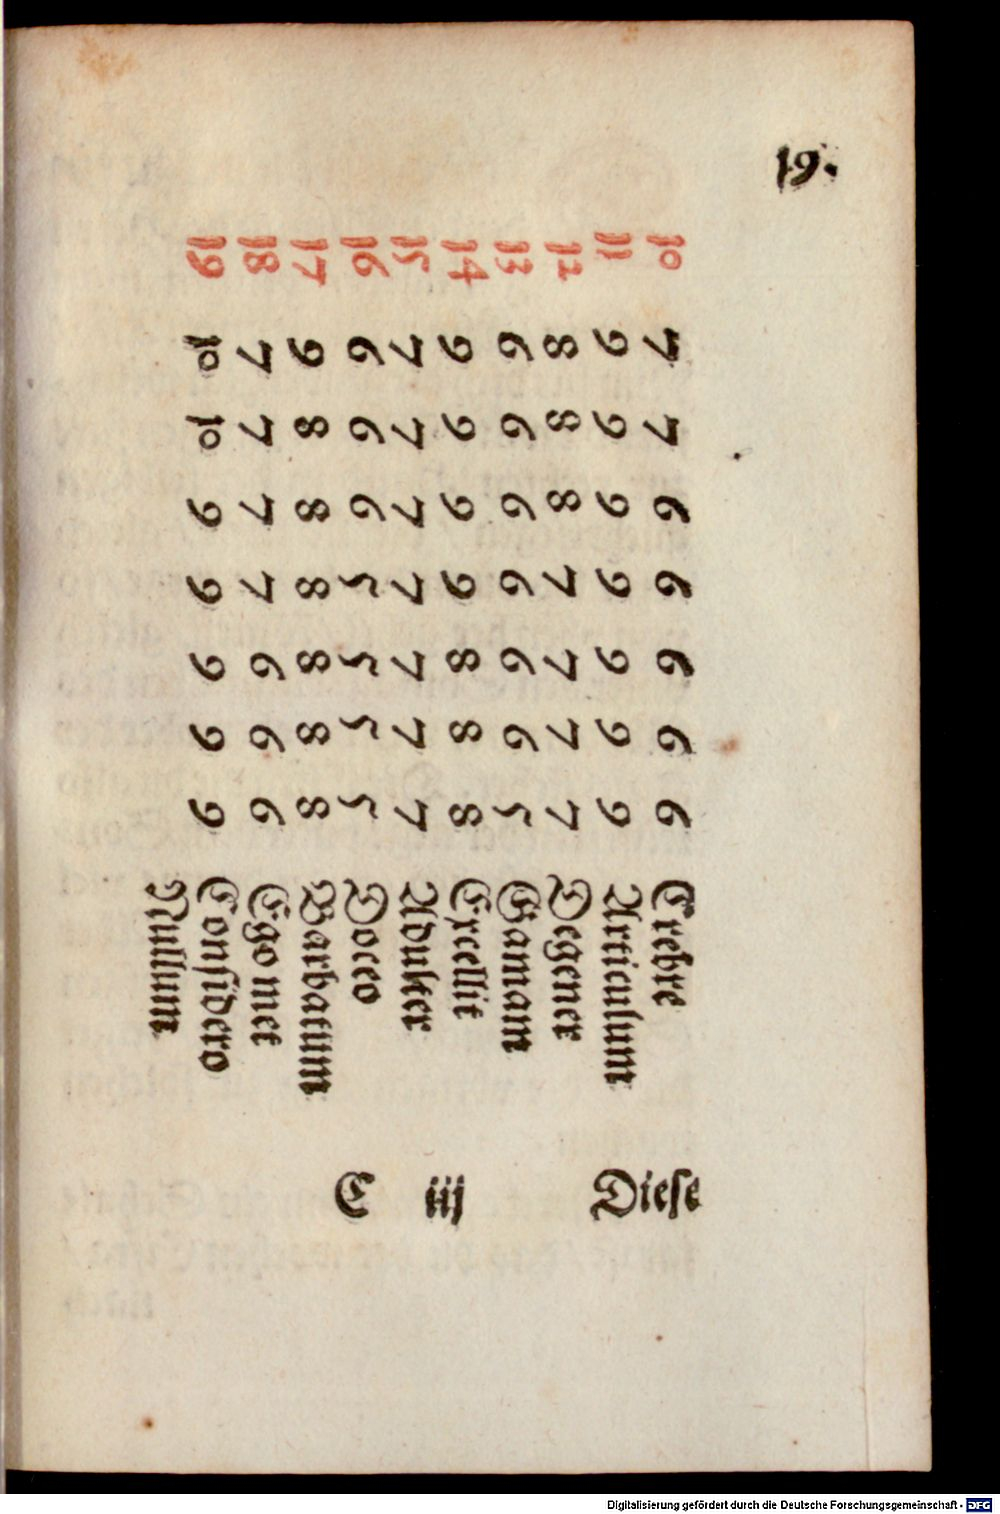 19.
10 7 7 6 6 6 6 6 Crebre
11 9 9 9 9 9 9 9 Articulum
12 8 8 8 7 7 7 7 Degener
13 6 6 6 6 6 6 5 Gamam
14 9 9 9 9 8 8 8 Excellit
15 7 7 7 7 7 7 7 Adulter
16 6 6 6 5 5 5 5 Doceo
17 9 8 8 8 8 8 8 Barbatum
18 7 7 7 7 6 6 6 Ego met
19 10 10 9 9 9 9 9 Considero
Nullum
C iij Diese
Digitalisierung gefördert durch die Deutsche Forschungsgemeinschaft - DFG